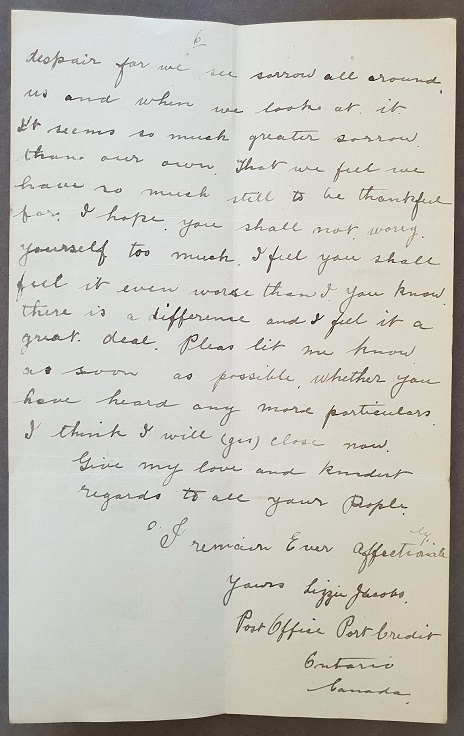 6
despair for we see sorrow all around.
us and when we look at it
It seems so much greater sorrow
than our own. That we feel we
have so much still to be thankful
for. I hope you shall not worry.
yourself too much. I feel you shall
feel it even worse than I. you know
there is a difference and I feel it a
great deal. Pleas let me know
as soon as possible, whether you
have heard any more particulars.
I think I will (yes) close now.
Give my love and kindest
regards to all your People.
I remain Ever Affectionate
ly.
Yours Lizzie Jacobs.
Post Office Port Credit
Ontario
Canada.